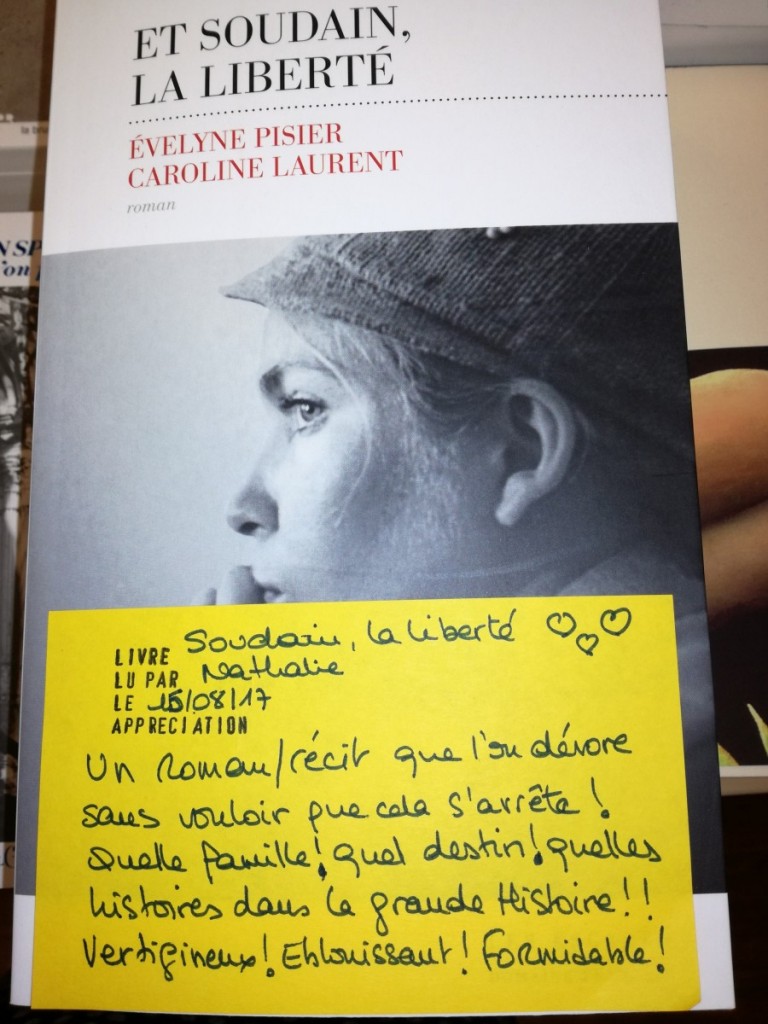 ET SOUDAIN,
LA LIBERTÉ
ÉVELYNE PISIER
CAROLINE LAURENT
roman
LIVRE Soudain, la liberté
LU PAR Nathalie
LE /08/17
APPRECIATION
Un roman/récit que l'on dévore
sans vouloir que cela s'arrête !
Quelle famille ! quel destin ! quelles
histoires dans la grande Histoire !!
Vertigineux ! Eblouissant ! Formidable !